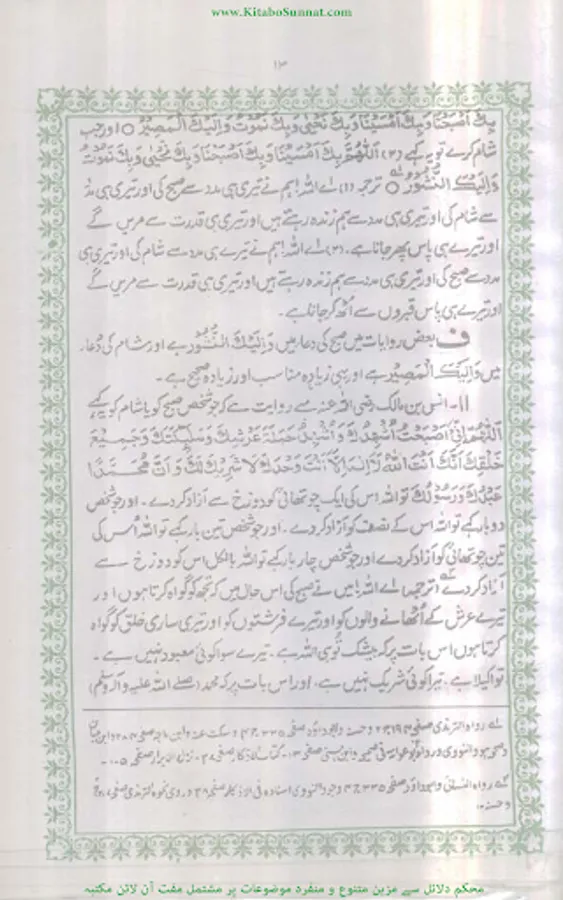 www.KitaboSunnat.com
۱۳
بِكَ اَصْبَحْنَا وَبِكَ اَمْسَيْنَا وَبِكَ نَحْيٰى وَبِكَ نَمُوْتُ وَاِلَيْكَ الْمَصِيْرُ ○ اور جب
شام کرے تو یہ کہے (۲) اَللّٰهُمَّ بِكَ اَمْسَيْنَا وَبِكَ اَصْبَحْنَا وَبِكَ نَحْيٰى وَبِكَ نَمُوْتُ
وَاِلَيْكَ النُّشُوْرُ ○ ترجمہ (۱) اے اللہ! ہم نے تیری ہی مدد سے صبح کی اور تیری ہی مدد
سے شام کی اور تیری ہی مدد سے ہم زندہ رہتے ہیں اور تیری ہی قدرت سے مریں گے
اور تیرے ہی پاس پھر جانا ہے۔ (۲) اے اللہ! ہم نے تیرے ہی مدد سے شام کی اور تیری ہی
مدد سے صبح کی اور تیری ہی مدد سے ہم زندہ رہتے ہیں اور تیری ہی قدرت سے مریں گے
اور تیرے ہی پاس قبروں سے اُٹھ کر جانا ہے۔
ف بعض روایات میں صبح کی دعا میں وَاِلَيْكَ النُّشُوْرُ ہے اور شام کی دعا
میں وَاِلَيْكَ الْمَصِيْرُ ہے اور یہی زیادہ مناسب اور زیادہ صحیح ہے۔
۱۱۔ انس بن مالک رضی اللہ عنہ سے روایت ہے کہ جو شخص صبح کو یا شام کو یہ کہے
اَللّٰهُمَّ اِنِّىْ اَصْبَحْتُ اُشْهِدُكَ وَاُشْهِدُ حَمَلَةَ عَرْشِكَ وَمَلٰٓئِكَتَكَ وَجَمِيْعَ
خَلْقِكَ اَنَّكَ اَنْتَ اللّٰهُ لَا اِلٰهَ اِلَّا اَنْتَ وَحْدَكَ لَا شَرِيْكَ لَكَ وَاَنَّ مُحَمَّدًا
عَبْدُكَ وَرَسُوْلُكَ تو اللہ اس کی ایک چوتھائی کو دوزخ سے آزاد کر دے۔ اور جو شخص
دو بار کہے تو اللہ اس کے نصف کو آزاد کر دے۔ اور جو شخص تین بار کہے تو اللہ اُس کی
تین چوتھائی کو آزاد کر دے اور جو شخص چار بار کہے تو اللہ بالکل اس کو دوزخ سے
آزاد کر دے۲ (ترجمہ) اے اللہ! میں نے صبح کی اس حال میں کہ تجھ کو گواہ کرتا ہوں اور
تیرے عرش کے اُٹھانے والوں کو اور تیرے فرشتوں کو اور تیری ساری خلق کو گواہ
کرتا ہوں اس بات پر کہ بیشک تُو ہی اللہ ہے۔ تیرے سوا کوئی معبود نہیں ہے۔
تو اکیلا ہے۔ تیرا کوئی شریک نہیں ہے، اور اس بات پر کہ محمد (صلے اللہ علیہ وآلہ وسلم)
۱ے رواہ الترمذی صفحہ وحسنہ وابوداود صفحہ ۳۳۵ وسکت عنہ وابن ماجہ صفحہ ۲۸۴ وابن حبان
وصححہ والنووی ورواہ ابوعوانہ فی صحیحہ وابن السنی صفحہ ۱۳۔ کتاب الاذکار صفحہ ۳۸۔ نزل الابرار صفحہ ۱۰۵۔
۲ے رواہ النسائی وابوداود صفحہ ۳۳۵ وجود النووی اسنادہ فی الاذکار صفحہ ۳۸ وروی نحوہ الترمذی صفحہ
وحسنہ
محکم دلائل سے مزین متنوع و منفرد موضوعات پر مشتمل مفت آن لائن مکتبہ